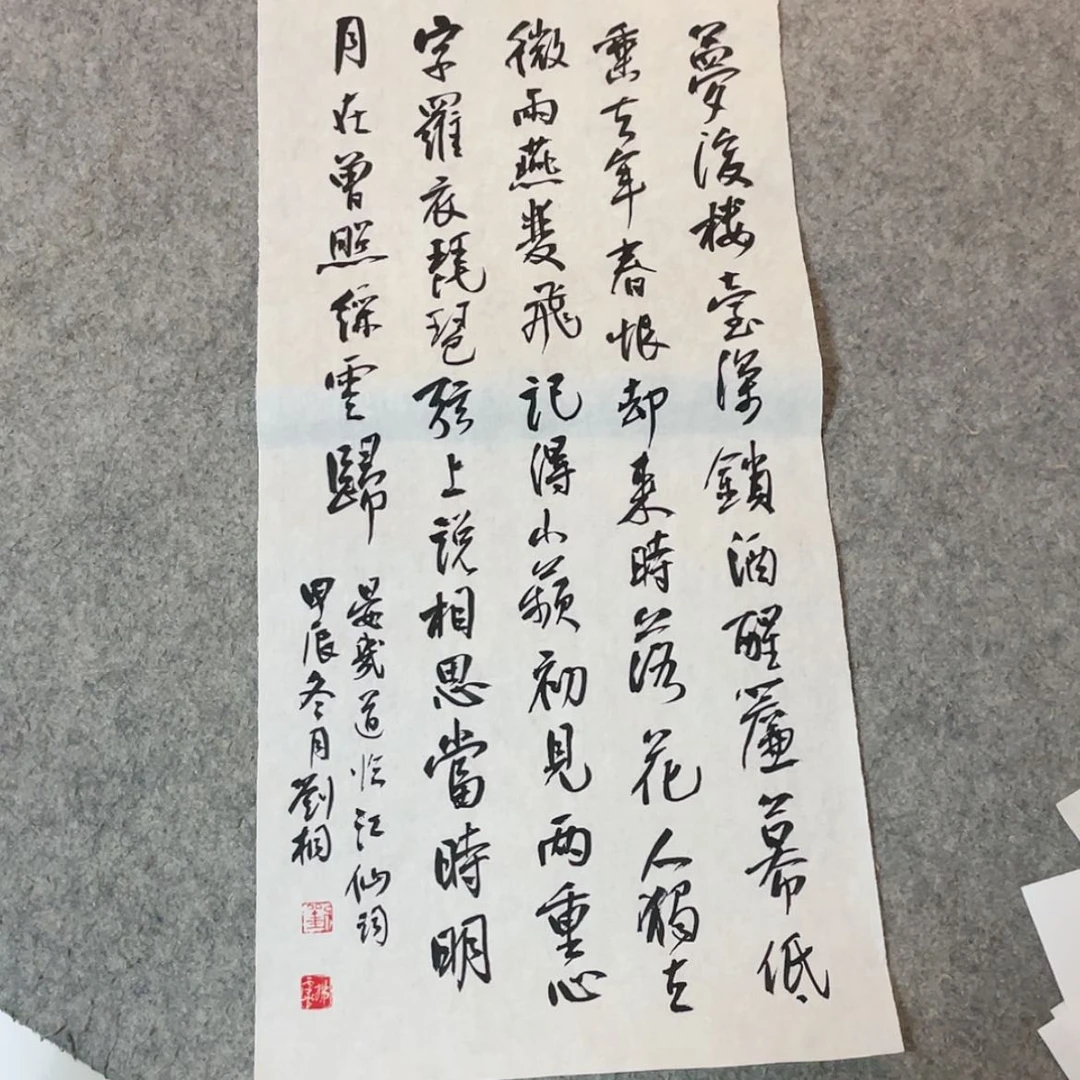 夢後樓臺深鎖酒醒簾幕低
垂去年春恨却来時落花人獨立
微雨燕雙飛記得小蘋初見两重心
字羅衣琵琶弦上説相思當時明
月在曾照綵雲歸
晏幾道临江仙詞
甲辰冬月劉相